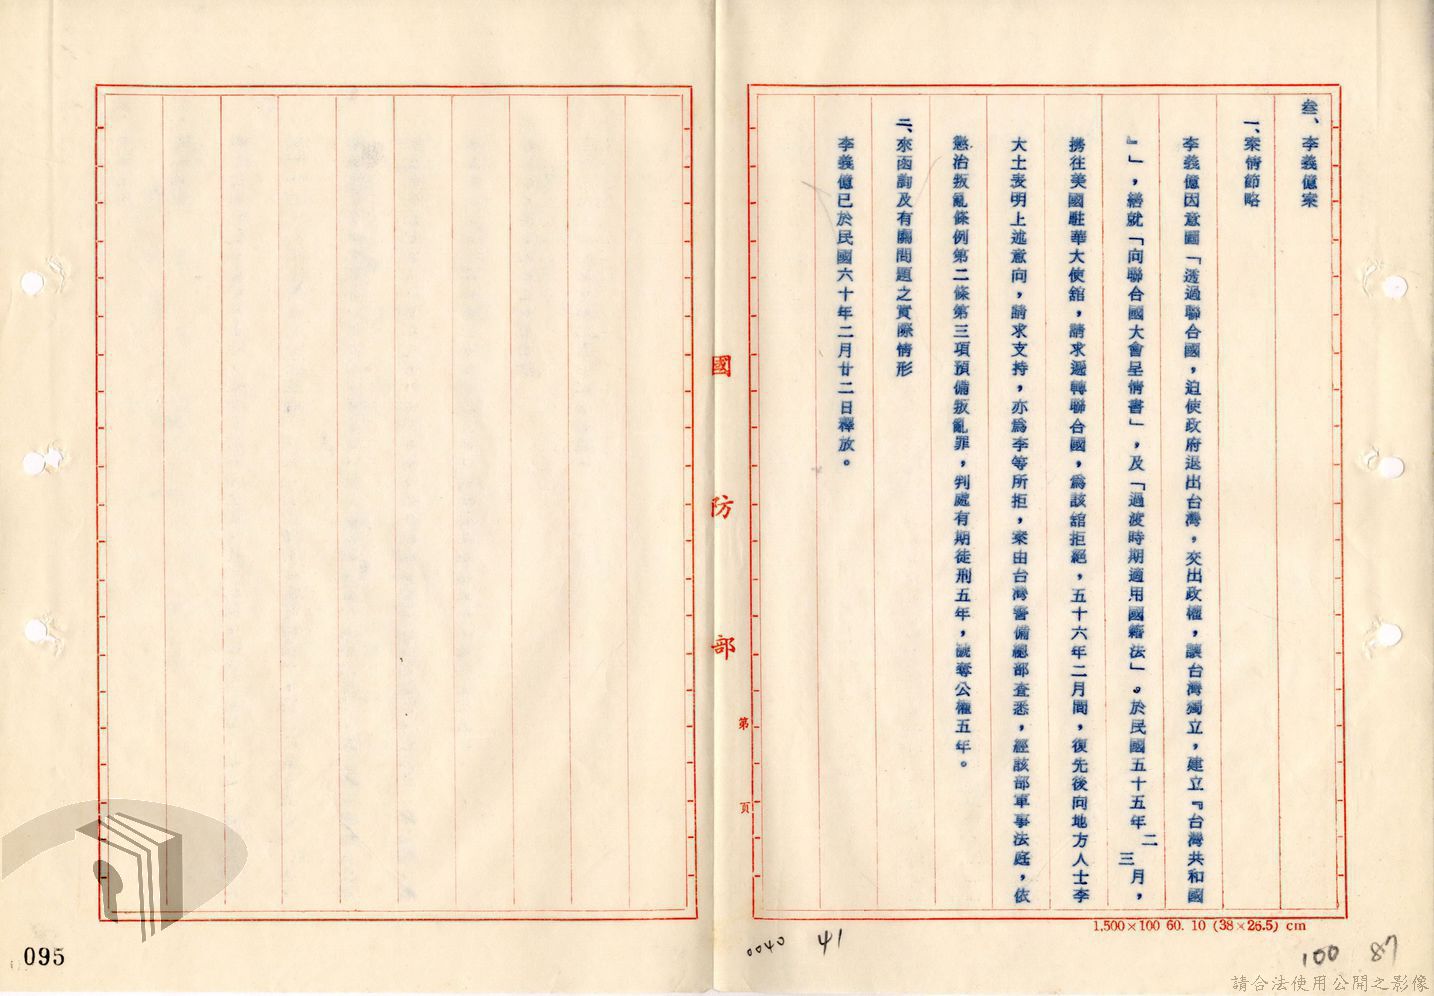 叁、李義億案
一、案情節略
李義億因意圖「透過聯合國，迫使政府退出台灣，交出政權，讓台灣獨立，建立『台灣共和國
』」，繕就「向聯合國大會呈情書」，及「過渡時期適用國籍法」。於民國五十五年二三月，
携往美國駐華大使舘，請求遞轉聯合國，為該舘拒絕，五十六年二月間，復先後向地方人士李
大士表明上述意向，請求支持，亦為李等所拒，案由台灣警備總部查悉，經該部軍事法庭，依
懲治叛亂條例第二條第三項預備叛亂罪，判處有期徒刑五年，褫奪公權五年。
二、來函詢及有關問題之實際情形
李義億已於民國六十年二月廿二日釋放。
國防部
第 頁
1,500×100 60. 10 (38×26.5) cm
0040 41
100 87
095
請合法使用公開之影像